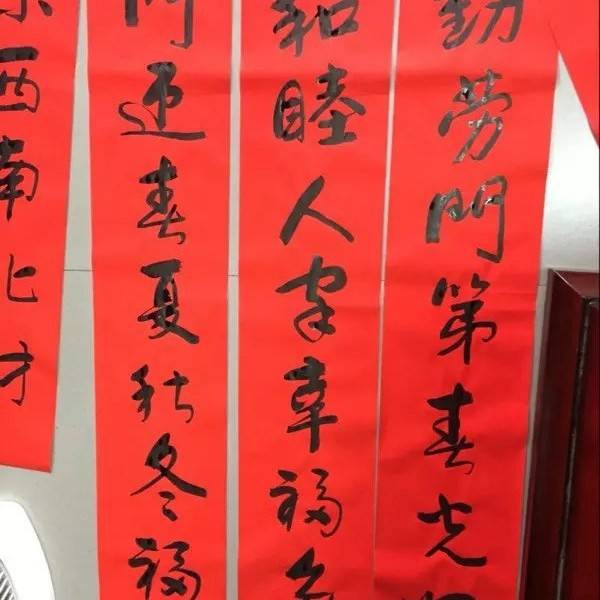 勤劳門第春光
和睦人家幸福
门迎春夏秋冬福
西南北才